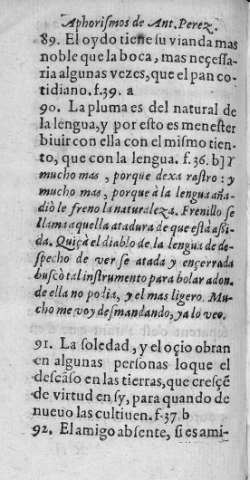 Aphorismos de Ant. Perez.
89. El oydo tiene su vianda mas
noble que la boca, mas neçessa-
ria algunas vezes, que el pan co-
tidiano. f.39. a
90. La pluma es del natural de
la lengua, y por esto es menester
biuir con ella con el mismo tien-
to, que con la lengua. f.36. b] Y
mucho mas, porque dexa rastro: y
mucho mas, porque à la lengua aña-
diò le freno la naturaleza. Frenillo se
llama aquella atadura de que està asi-
da. Quiçà el diablo de la lengua de de-
specho de ver se atada y ençerrada
buscò tal instrumento para bolar adon-
de ella no podia, y el mas ligero. Mu-
cho me voy desmandando, ya lo veo.
91. La soledad, y el oçio obran
en algunas personas loque el
descãso en las tierras, que cresçẽ
de virtud en sy, para quando de
nueuo las cultiuen. f.37 b
92. El amigo absente, si es ami-